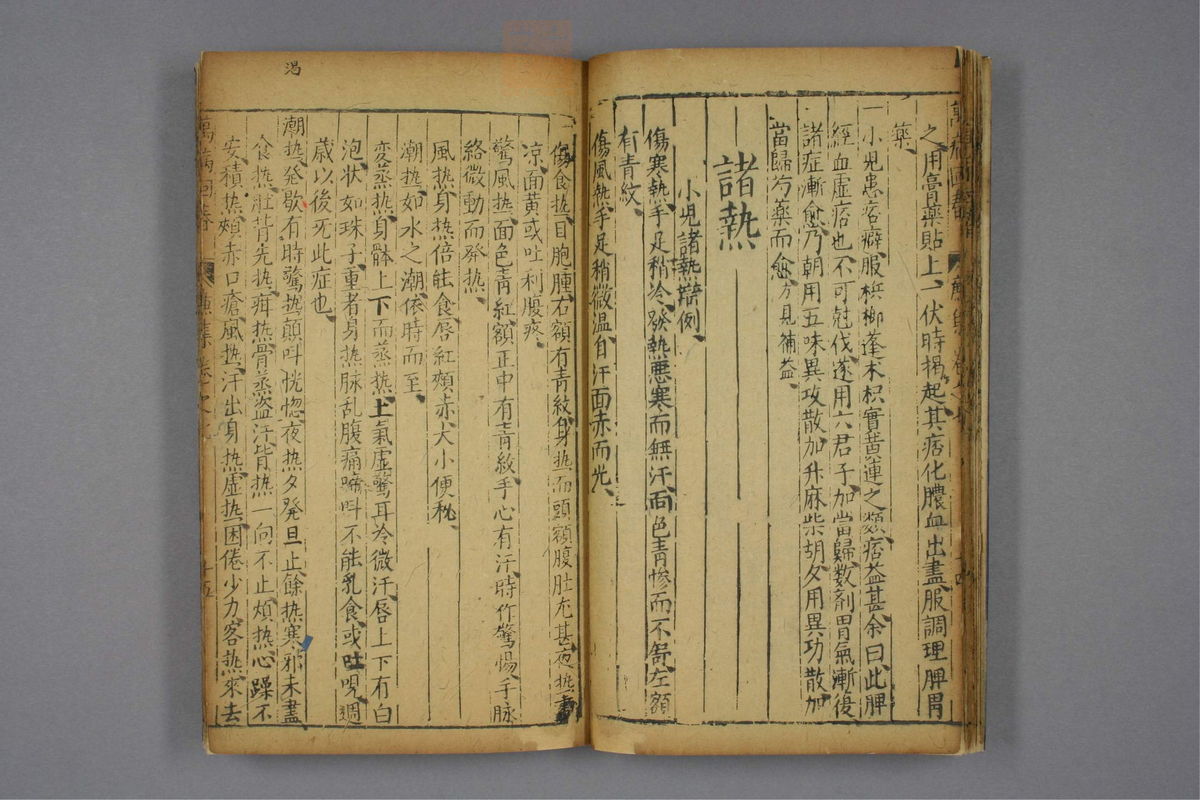 之用膏藥貼上一伏時揭起其痞化膿血出盡服調理脾胃
藥
一小兒患痞癖服梹榔蓬术枳實黃連之類痞益甚余曰此脾
經血虛痞也不可尅伐遂用六君子加當歸數劑胃氣漸復
諸症漸愈乃朝用五味異攻散加升麻柴胡夕用異功散加
當歸芍藥而愈方見補益
諸熱
小兒諸熱辯例
傷寒熱手足稍冷發熱悪寒而無汗面色青惨而不舒左額
有青紋
傷風熱手足稍微温自汗面赤而光
傷食热目胞腫右額有青紋身热而頭額腹肚尤甚夜热晝
凉面黄或吐利腹疼
驚風热面色青紅額正中有青紋手心有汗時作驚惕手脉
絡微動而發热
風热身热倍能食唇紅頰赤大小便秘
潮热如水之潮依時而至
変蒸热身體上下而蒸热上氣虛驚耳冷微汗唇上下有白
泡状如珠子重者身热脉乱腹痛啼呌不能乳食或吐哯週
歳以後无此症也
潮热發歇有時驚热顛呌恍惚夜热夕發旦止餘热寒邪未盡
食热肚背先热疳热骨蒸盗汗皆热一向不止煩热心躁不
安積热頰赤口瘡風热汗出身热虛热困倦少力客热來去
萬病回春
渴